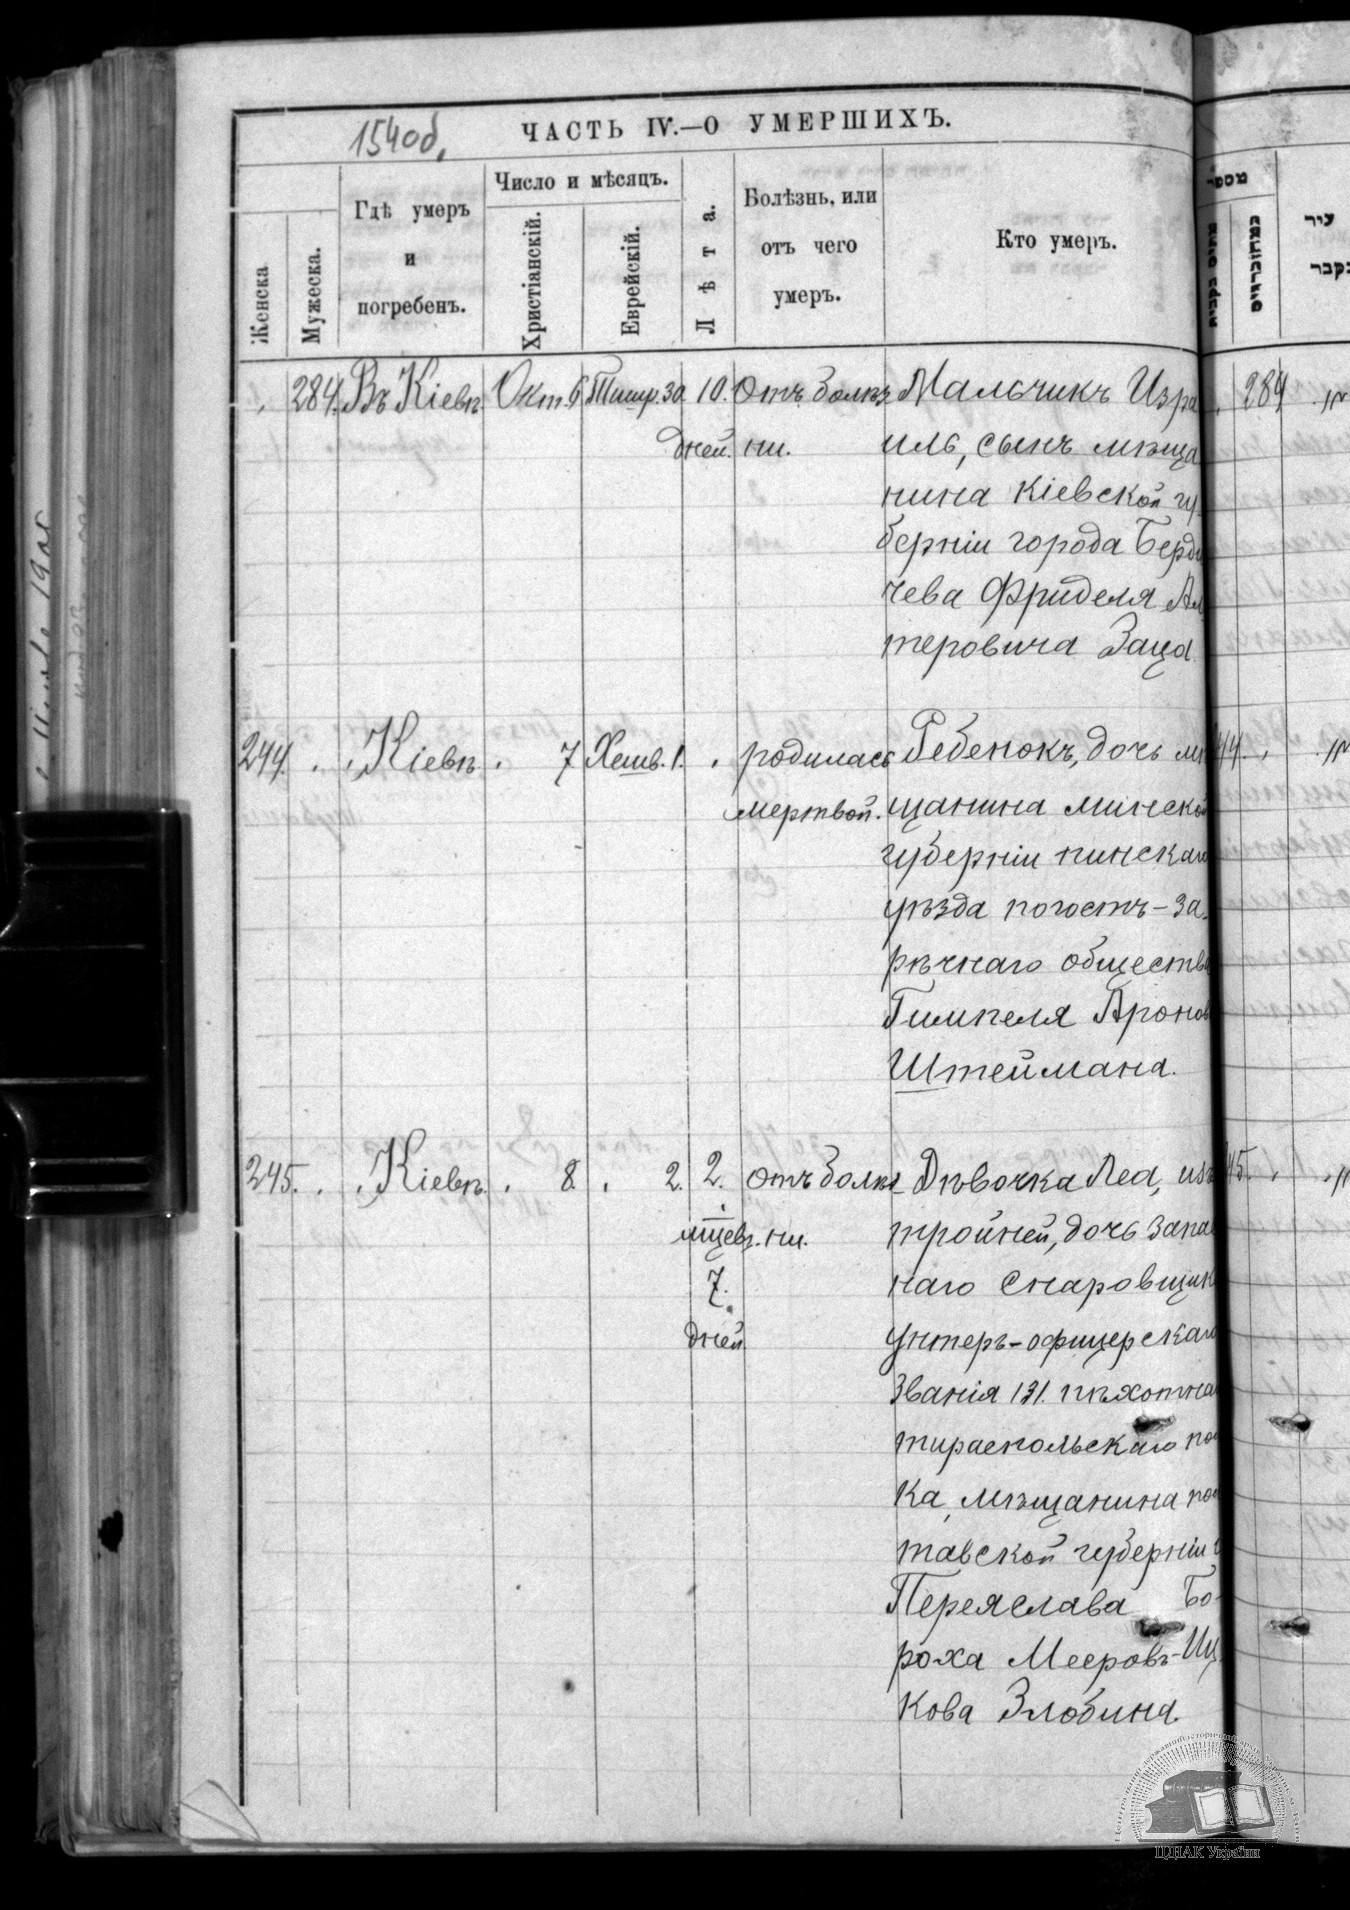 154об.
ЧАСТЬ IV.—О УМЕРШИХЪ.
Женска
Мужеска.
Гдѣ умеръ
и
погребенъ.
Число и мѣсяцъ.
Христіанскій.
Еврейскій.
Лѣта.
Болѣзнь, или
отъ чего
умеръ.
Кто умеръ.
מספר
עיר
284. Въ Кіевѣ. Окт. 6. Тишр. 30 10. Отъ болѣз Мальчикъ Изра 284
дней. ни. иль, сынъ мѣща
нина Кіевской гу
берніи города Берди
чева Фриделя Ал
теровича Заца
244. Кіевѣ. 7 Хешв. 1. родилась Ребенокъ, дочь мѣ 44.
мертвой. щанина минской
губерніи пинскаго
уѣзда погостъ-за
рѣчнаго общества
Гимпеля Аронов
Штеймана.
245. Кіевѣ. 8. 2. 2. отъ болѣз Дѣвочка Леа, изъ 45.
мѣцев. ни. тройней, дочь запас
7. наго снаровщик
дней унтеръ-офицерскаго
званія 131. пѣхотна
тираспольскаго пол
ка, мѣщанина пол
тавской губерніи г
Переяслава Бо-
роха Мееровъ-Иц
кова Злобина.
ЦДІАК України